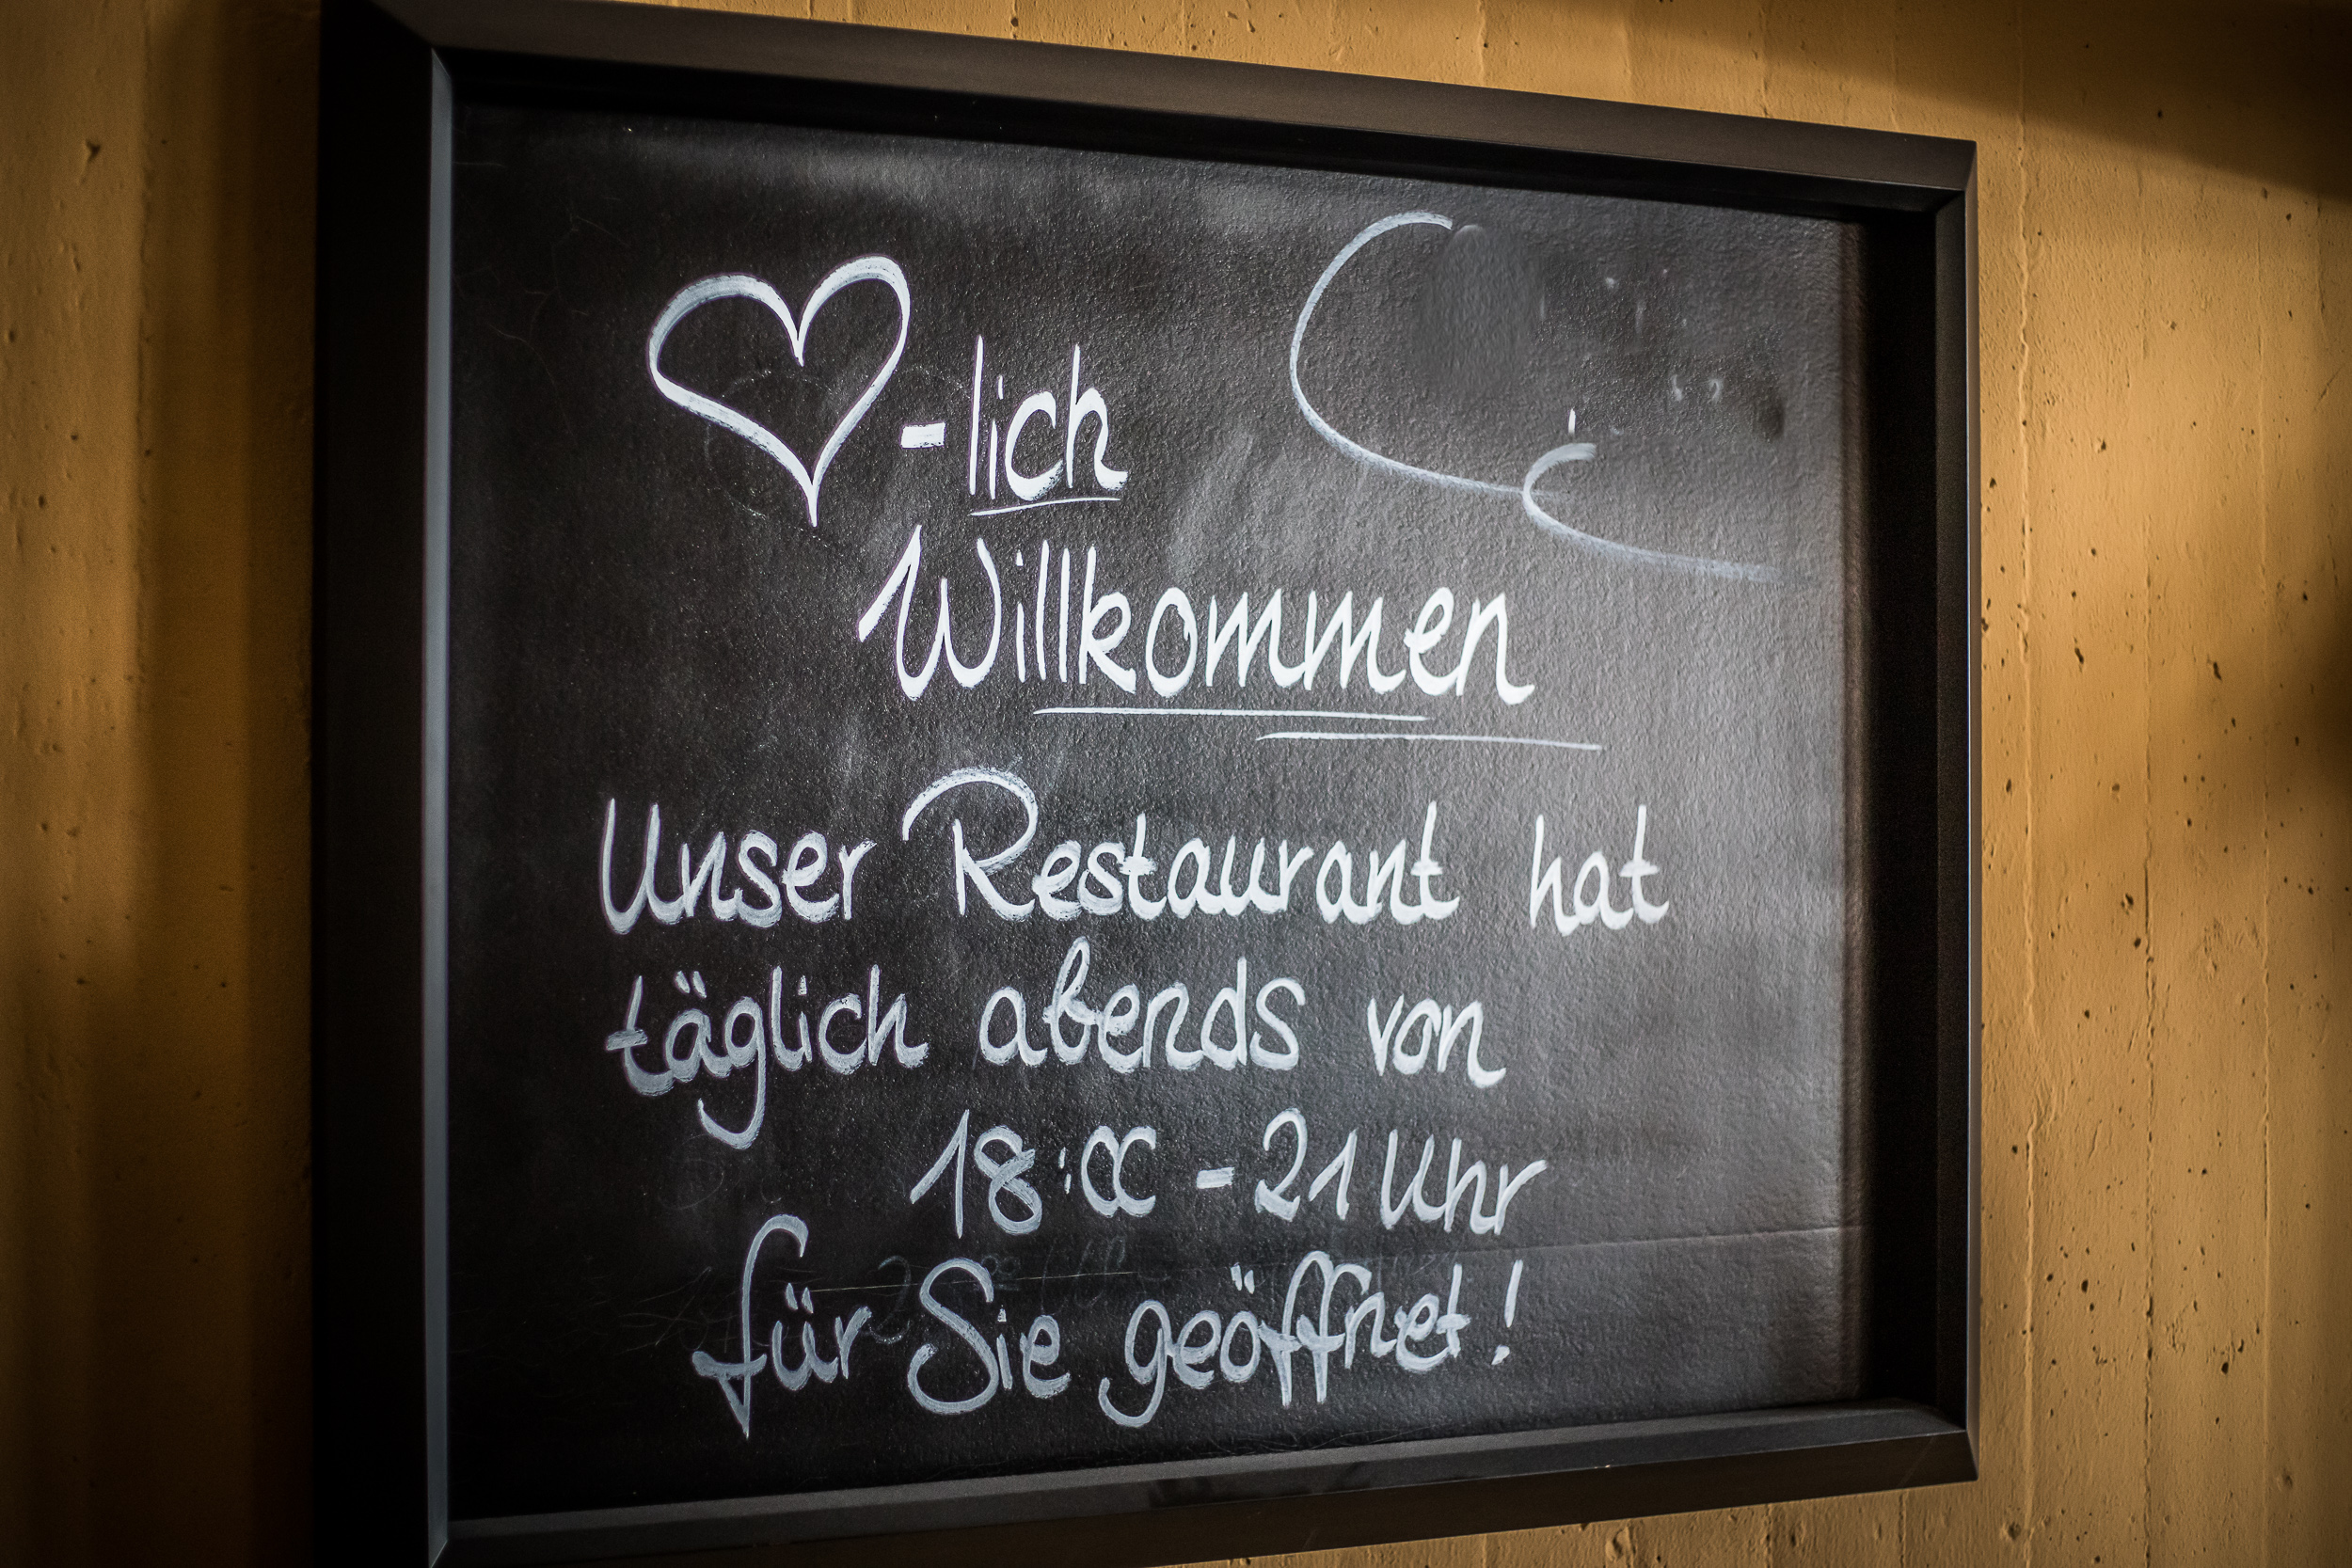 ♡-lich
Willkommen
Unser Restaurant hat
täglich abends von
18:00 - 21 Uhr
für Sie geöffnet!